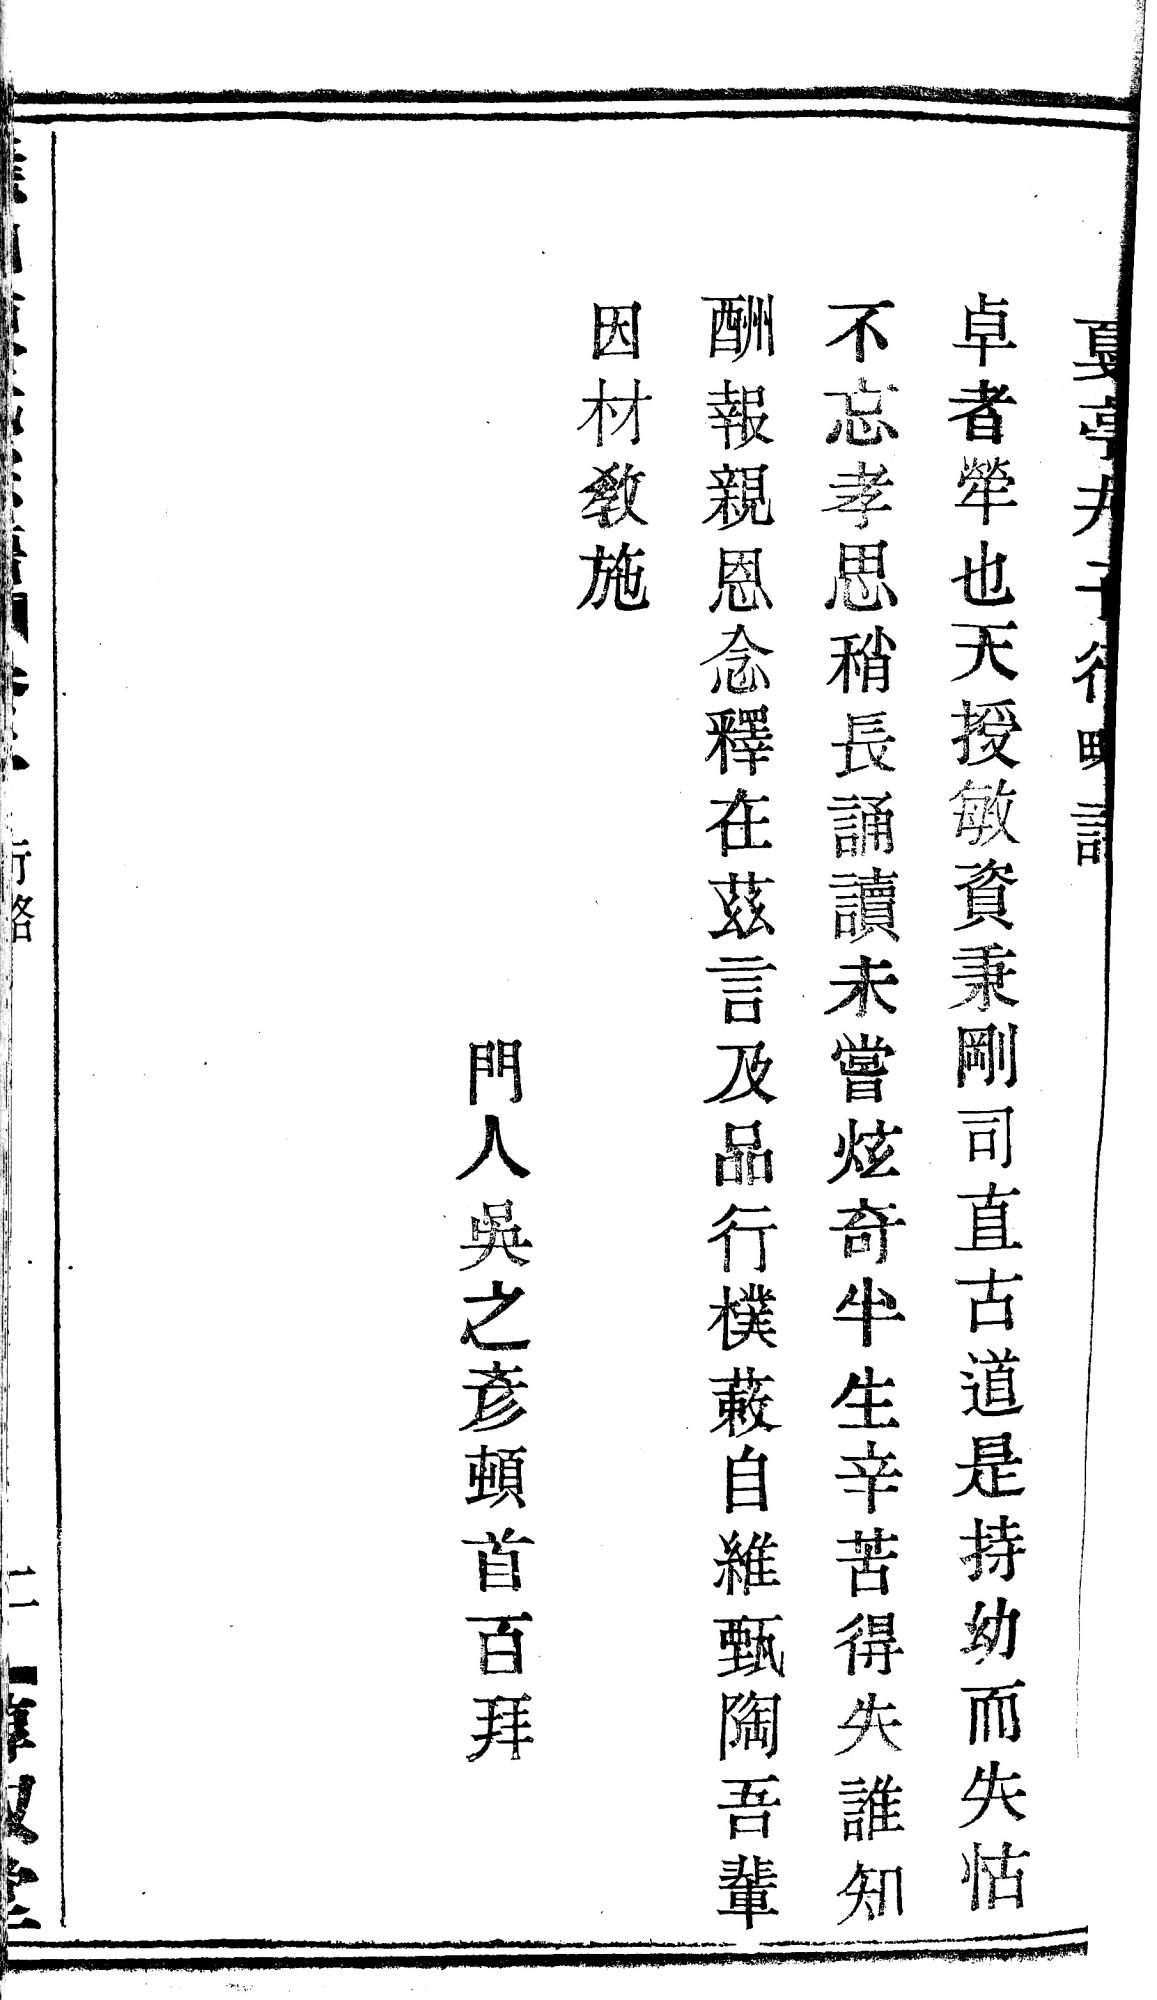 夏亭夫子行略詩
卓者犖也天授敏資秉剛司直古道是持幼而失怙
不忘孝思稍長誦讀未嘗炫奇半生辛苦得失誰知
酬報親恩念釋在茲言及品行樸蔌自維甄陶吾輩
因材教施
門人吳之彥頓首百拜
行略
二